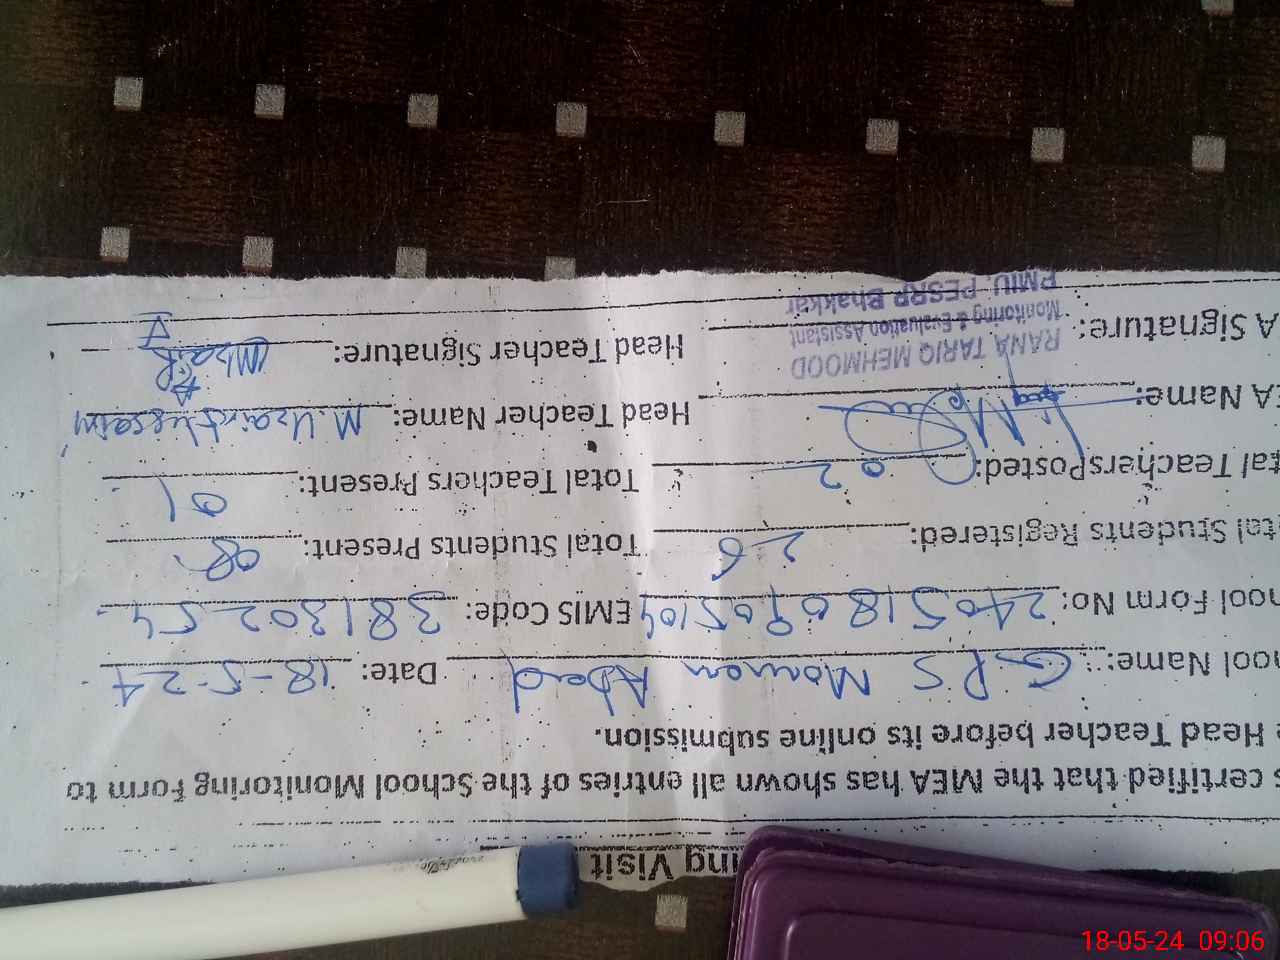 ing Visit
s certified that the MEA has shown all entries of the School Monitoring Form to
e Head Teacher before its online submission.
hool Name: G.P.S Momon Abad Date: 18-5-24
hool Form No: 2405180905104 EMIS Code: 38130254
tal Students Registered: 26 Total Students Present: 08
tal Teachers Posted: 02 Total Teachers Present: 01
EA Name: Head Teacher Name: M.Uzair Hussain
A Signature: Head Teacher Signature: Uzair
RANA TARIQ MEHMOOD
Monitoring & Evaluation Assistant
PMIU. PESRP Bhakkar
18-05-24 09:06